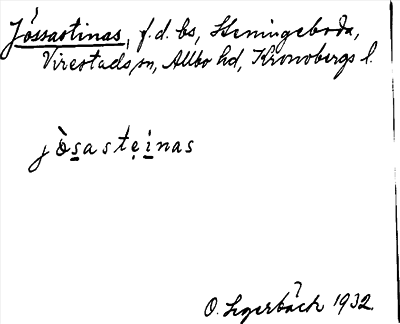 Jössastinas, f.d. bs, Steningeboda,
Virestads sn, Allbo hd, Kronobergs l.
jòsastẹinas
O. 1932.